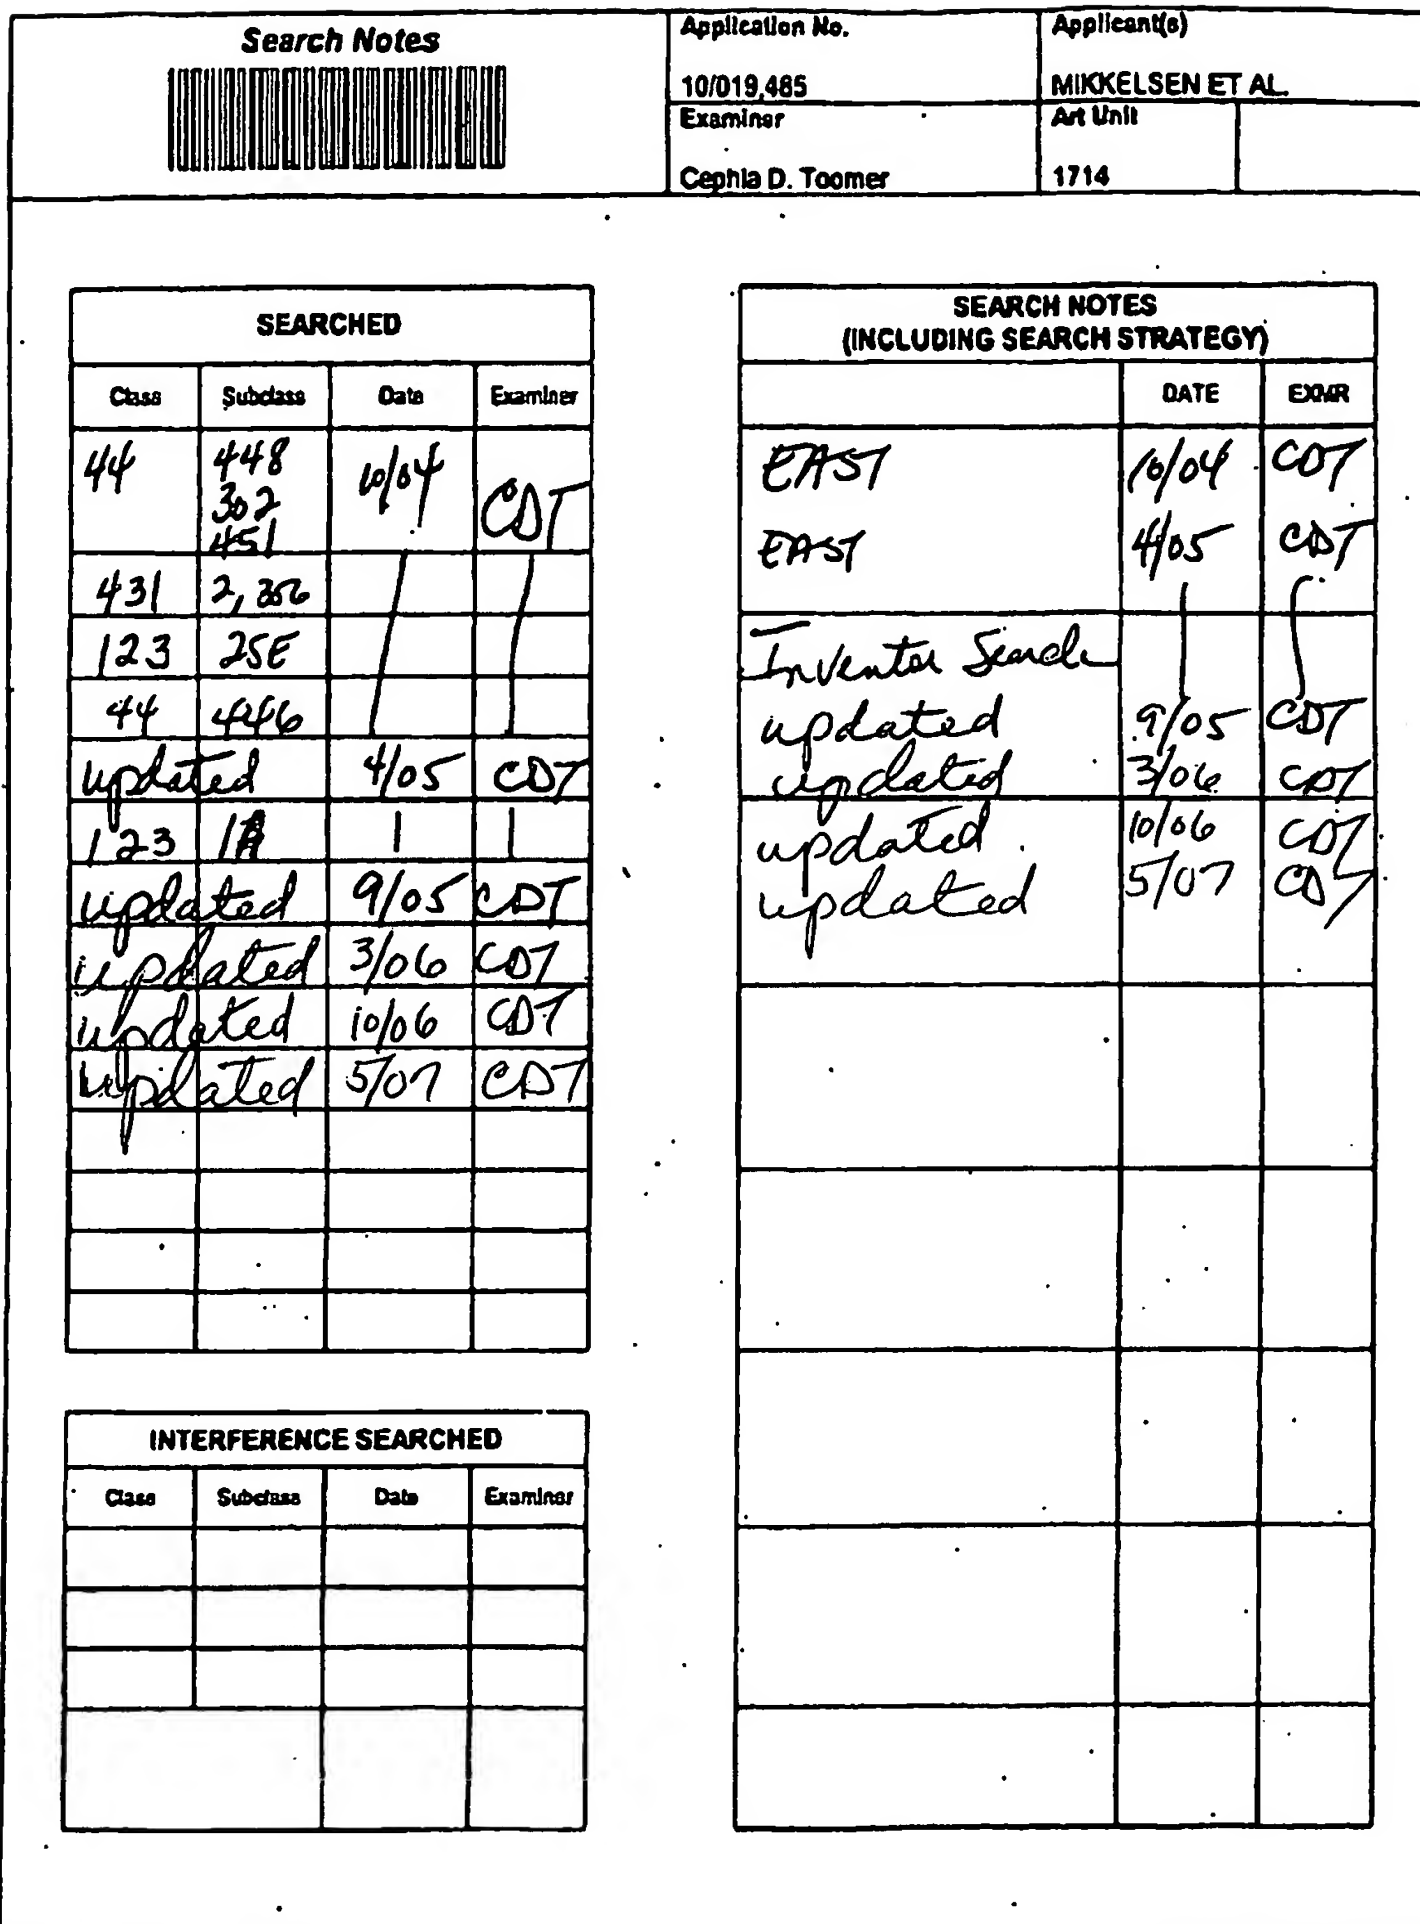 Search Notes
Application No.
10/019,485
Applicant(s)
MIKKELSEN ET AL.
Examiner
Cephia D. Toomer
Art Unit
1714
SEARCHED
Class Subclass Date Examiner
44 448 10/04 CDT
302
451
431 2, 356
123 25E
44 446
updated 4/05 CDT
123 1A
updated 9/05 CDT
updated 3/06 CDT
updated 10/06 CDT
updated 5/07 CDT
INTERFERENCE SEARCHED
Class Subclass Date Examiner
SEARCH NOTES
(INCLUDING SEARCH STRATEGY)
DATE EXMR
EAST 10/04 CDT
EAST 4/05 CDT
Inventor Search
updated 9/05 CDT
updated 3/06 CDT
updated 10/06 CDT
updated 5/07 CDT